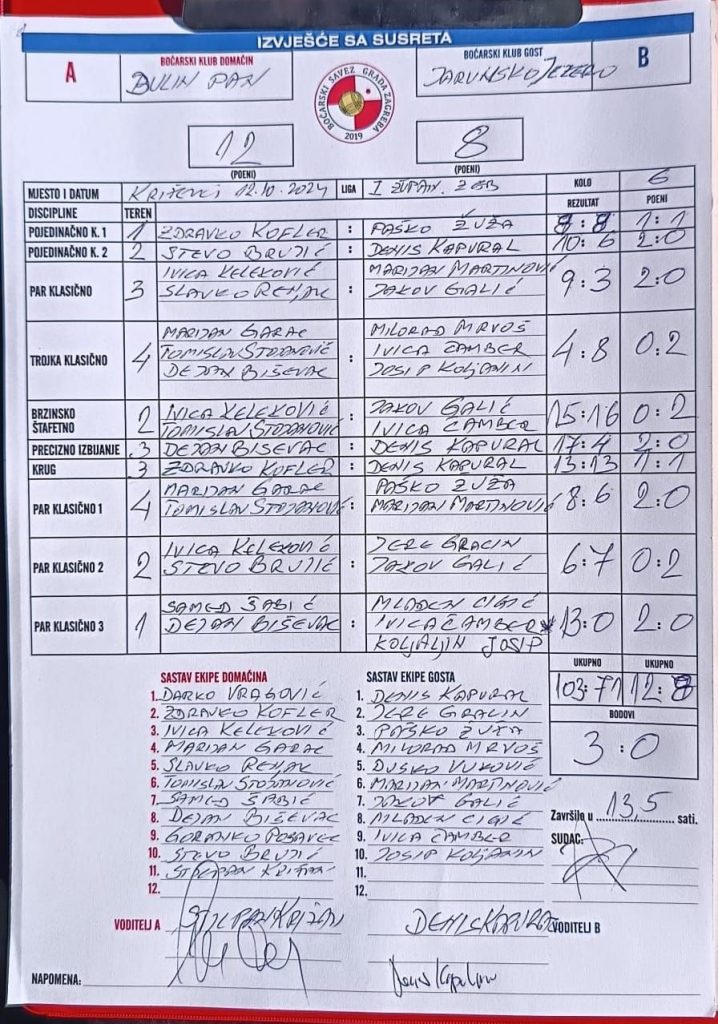 IZVJEŠĆE SA SUSRETA
A BOĆARSKI KLUB DOMAĆIN BOĆARSKI KLUB GOST B
BULIN PAN JARUNSKO JEZERO
BOĆARSKI SAVEZ GRADA ZAGREBA
2019
12 8
(POENI) (POENI)
MJESTO I DATUM KRIŽEVCI 12.10.2024 LIGA I ŽUPAN. ZGB KOLO 6
DISCIPLINE TEREN REZULTAT POENI
POJEDINAČNO K. 1 1 ZDRAVKO KOFLER : PAŠKO ŽUŽA 8:8 1:1
POJEDINAČNO K. 2 2 STEVO BRUJIĆ : DENIS KAPURAL 10:6 2:0
IVICA KELEKOVIĆ MARIJAN MARTINOVIĆ
PAR KLASIČNO 3 SLAVKO REMJAK : JAKOV GALIĆ 9:3 2:0
MARIJAN GARAC MILORAD MRVOŠ
TROJKA KLASIČNO 4 TOMISLAV STOJANOVIĆ : IVICA ČAMBER 4:8 0:2
DEJAN BIŠEVAC JOSIP KOLJANIN
BRZINSKO ŠTAFETNO 2 IVICA KELEKOVIĆ : JAKOV GALIĆ 15:16 0:2
TOMISLAV STOJANOVIĆ IVICA ČAMBER
PRECIZNO IZBIJANJE 3 DEJAN BIŠEVAC : DENIS KAPURAL 17:4 2:0
KRUG 3 ZDRAVKO KOFLER : DENIS KAPURAL 13:13 1:1
MARIJAN GARAC PAŠKO ŽUŽA
PAR KLASIČNO 1 4 TOMISLAV STOJANOVIĆ : MARIJAN MARTINOVIĆ 8:6 2:0
IVICA KELEKOVIĆ JERE GRACIN
PAR KLASIČNO 2 2 STEVO BRUJIĆ : JAKOV GALIĆ 6:7 0:2
SAMED ŠABIĆ MLADEN CIGIĆ
PAR KLASIČNO 3 1 DEJAN BIŠEVAC : IVICA ČAMBER 13:0 2:0
KOLJALJIN JOSIP
UKUPNO UKUPNO
SASTAV EKIPE DOMAĆINA SASTAV EKIPE GOSTA
103:71 12:8
1. DARKO VRAGOVIĆ 1. DENIS KAPURAL
2. ZDRAVKO KOFLER 2. JERE GRACIN
BODOVI
3. IVICA KELEKOVIĆ 3. PAŠKO ŽUŽA
4. MARIJAN GARAC 4. MILORAD MRVOŠ
3:0
5. SLAVKO REMJAK 5. DUŠKO VUKOVIĆ
6. TOMISLAV STOJANOVIĆ 6. MARIJAN MARTINOVIĆ
7. SAMED ŠABIĆ 7. JAKOV GALIĆ
8. DEJAN BIŠEVAC 8. MLADEN CIGIĆ
Završilo u 13,5 sati.
9. GORANKO POSAVEC 9. IVICA ČAMBER
SUDAC:
10. STEVO BRUJIĆ 10. JOSIP KOLJANIN
11. STJEPAN KRIŽAN 11.
12. 12.
VODITELJ A STJEPAN KRIŽAN DENIS KAPURAL VODITELJ B
NAPOMENA: